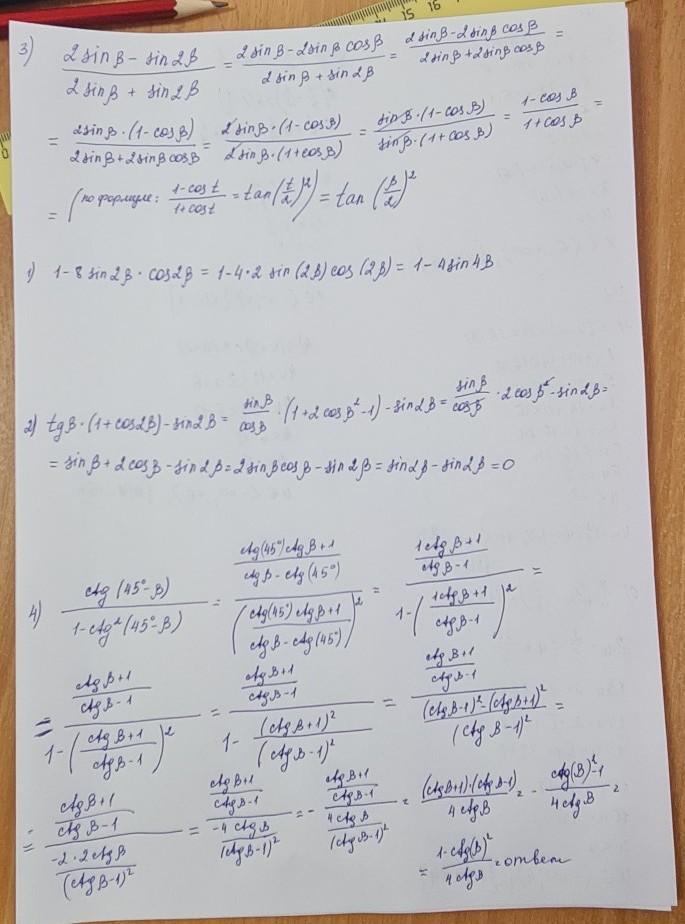 3) (2 sin β − sin 2β)/(2 sin β + sin 2β) = (2 sin β − 2 sin β cos β)/(2 sin β + sin 2β) = (2 sin β − 2 sin β cos β)/(2 sin β + 2 sin β cos β) =
= (2 sin β · (1 − cos β))/(2 sin β + 2 sin β cos β) = (2 sin β · (1 − cos β))/(2 sin β · (1 + cos β)) = (sin β · (1 − cos β))/(sin β · (1 + cos β)) = (1 − cos β)/(1 + cos β) =
= (по формуле: (1 − cos t)/(1 + cos t) = tan(t/2)²) = tan(β/2)²
1) 1 − 8 sin 2β · cos 2β = 1 − 4 · 2 sin (2β) cos (2β) = 1 − 4 sin 4β
2) tg β · (1 + cos 2β) − sin 2β = sin β/cos β · (1 + 2 cos β² − 1) − sin 2β = sin β/cos β · 2 cos β² − sin 2β =
= sin β + 2 cos β − sin 2β = 2 sin β cos β − sin 2β = sin 2β − sin 2β = 0
4) ctg (45° − β)/(1 − ctg² (45° − β)) = ((ctg (45°) ctg β + 1)/(ctg β − ctg (45°)))/((ctg (45°) ctg β + 1)/(ctg β − ctg (45°)))² = ((1 ctg β + 1)/(ctg β − 1))/(1 − ((1 ctg β + 1)/(ctg β − 1))²) =
= ((ctg β + 1)/(ctg β − 1))/(1 − ((ctg β + 1)/(ctg β − 1))²) = ((ctg β + 1)/(ctg β − 1))/(1 − (ctg β + 1)²/(ctg β − 1)²) = ((ctg β + 1)/(ctg β − 1))/(((ctg β − 1)² − (ctg β + 1)²)/(ctg β − 1)²) =
= ((ctg β + 1)/(ctg β − 1))/((−2 · 2 ctg β)/(ctg β − 1)²) = ((ctg β + 1)/(ctg β − 1))/((−4 ctg β)/(ctg β − 1)²) = − ((ctg β + 1)/(ctg β − 1))/((4 ctg β)/(ctg β − 1)²) = ((ctg β + 1) · (ctg β − 1))/(4 ctg β) = − (ctg (β)² − 1)/(4 ctg β) =
= (1 − ctg (β)²)/(4 ctg β) = ответ
0
14
15
16